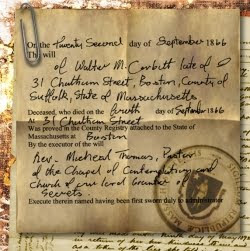 On the Twenty Second day of September 1866
The will
of Walter M. Corbitt late of
31 Chatham Street, Boston, County of
Suffolk, State of Massachusetts
Deceased, who died on the fourth day of September 1866
At 31 Chatham Street
Was proved in the County Registry attached to the State of
Massachusetts at Boston
By the executor of the will
Rev. Michael Thomas, Pastor
of the Chapel of Contemplation and
Church of our Lord Granter of
Secrets
Execute therein named having been first sworn duly to administrate